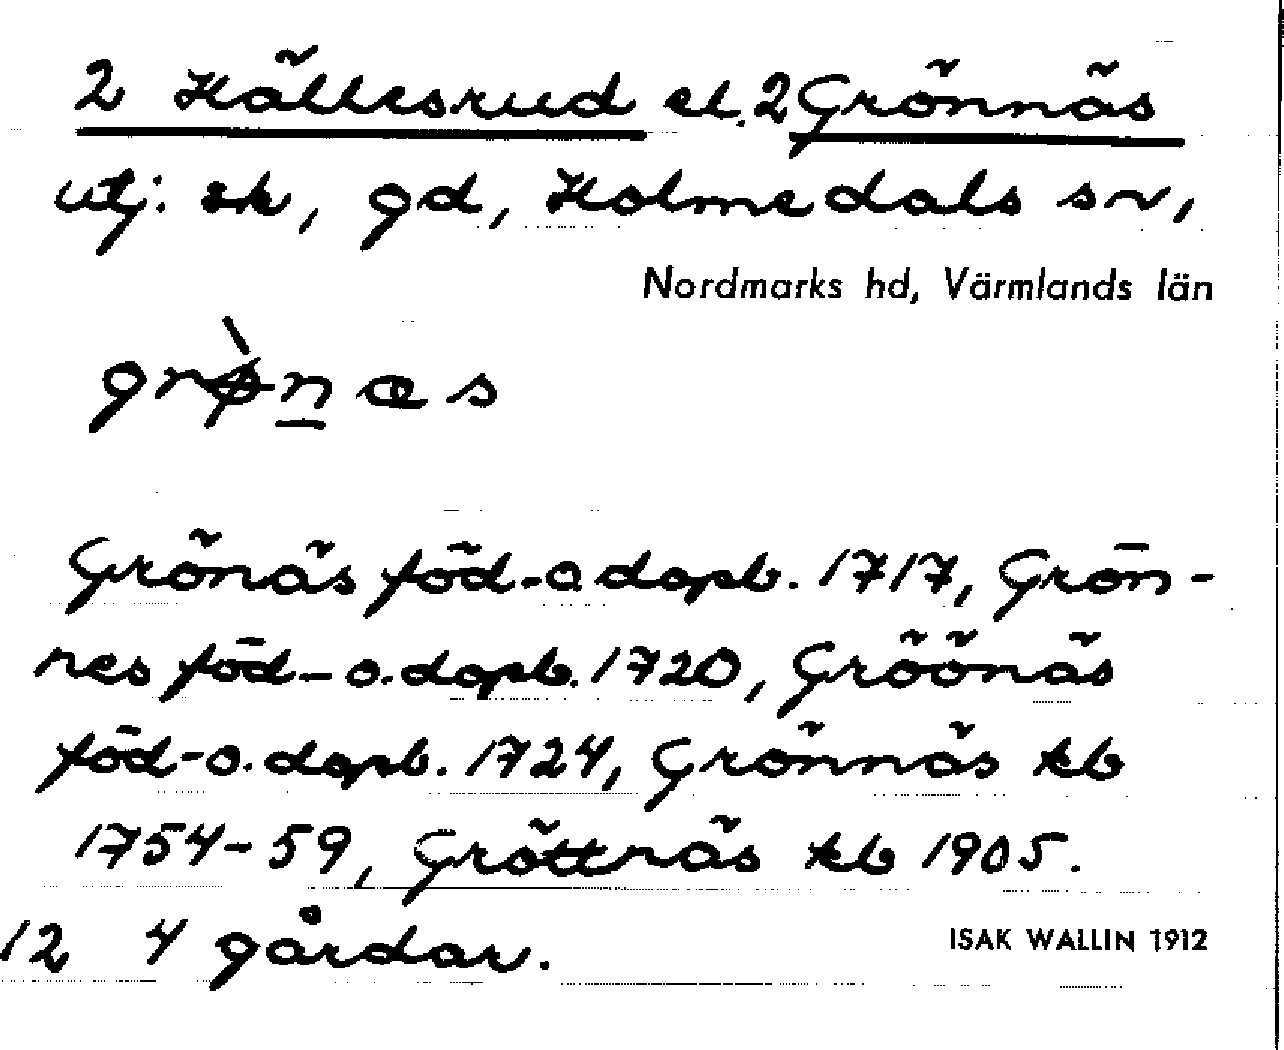 2 Källesrud el. 2 Grönnäs
utj. sk, gd, Holmedals sn,
Nordmarks hd, Värmlands län
grø̀n̲æs
Grönäs föd-o dopb. 1717, Grön-
nes föd-o. dopb. 1720, Gröönäs
föd-o. dopb. 1724, Grönnäs kb
1754-59, Gröttnäs kb 1905.
12 4 gårdar.
ISAK WALLIN 1912